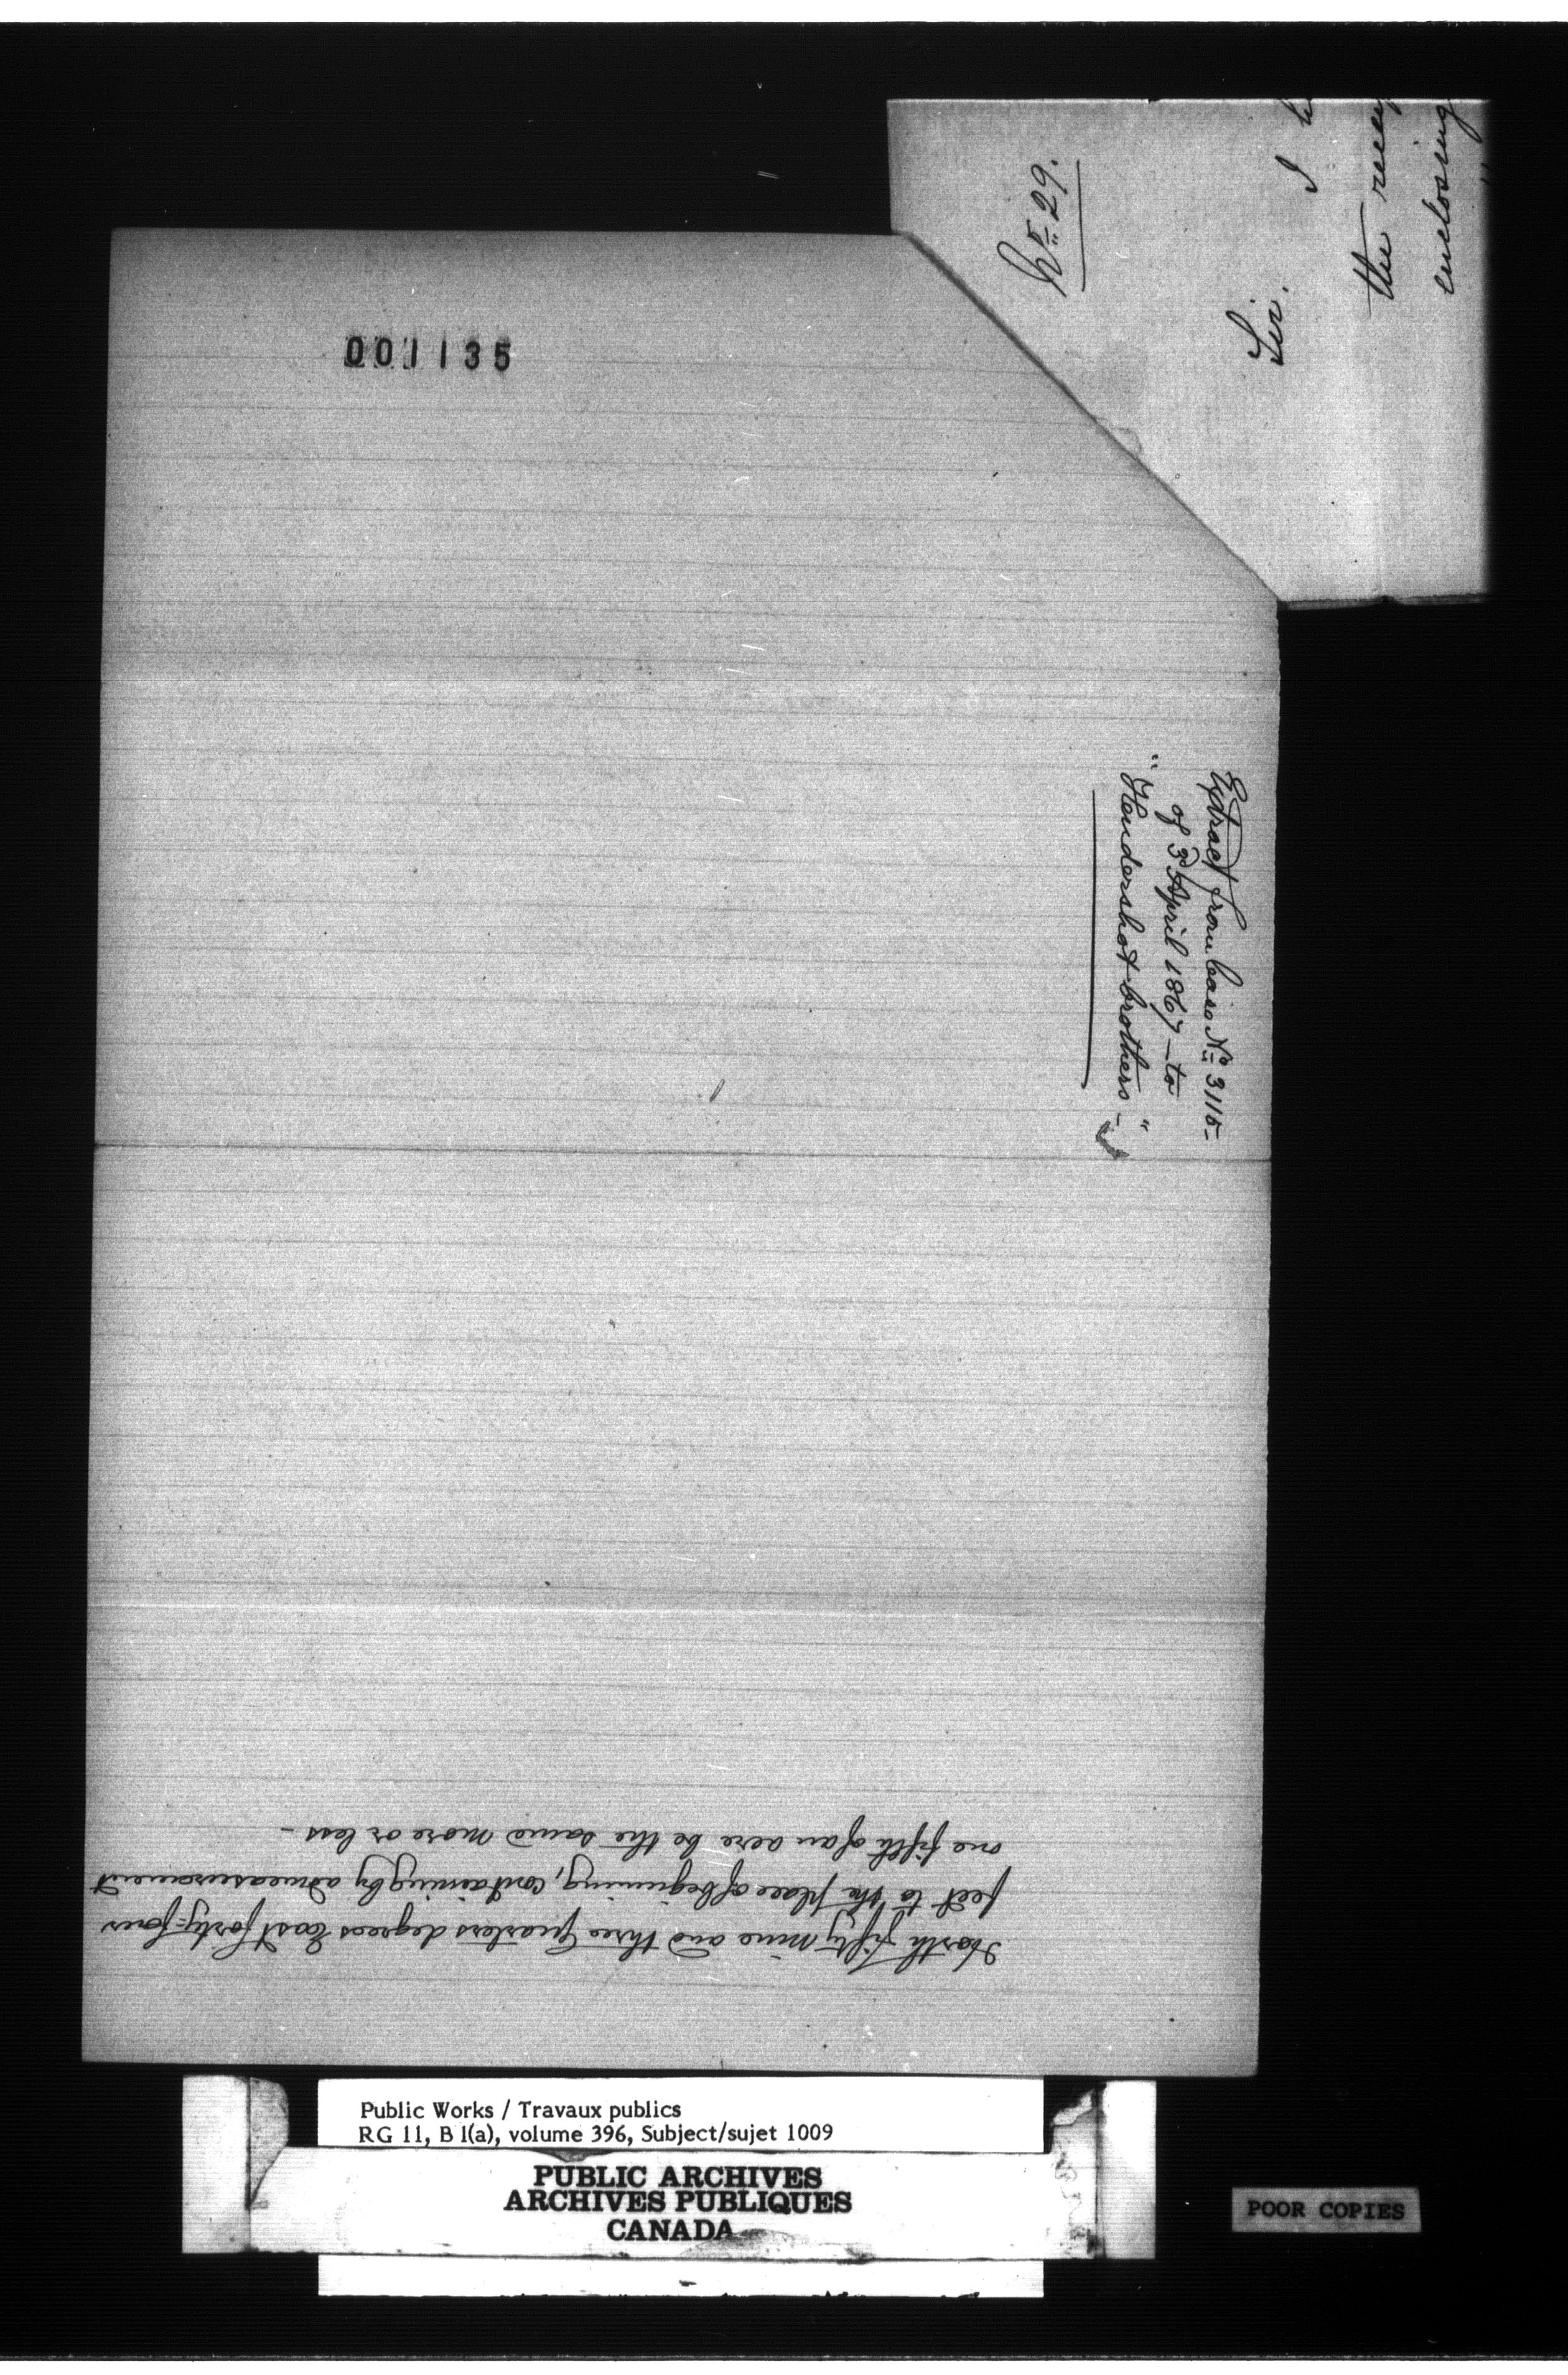 No. 29.
Sir.
I
the
enclosing
001135
Extract from Lease No. 3115-
of 3d April 1867 - to
"Hendershot brothers - "
North fifty nine and three quarters degrees East forty=four
feet to the place of beginning, containing by admeasurement
one fifth of an acre be the same more or less -
Public Works / Travaux publics
RG 11, B 1(a), volume 396, Subject/sujet 1009
PUBLIC ARCHIVES
ARCHIVES PUBLIQUES
CANADA
POOR COPIES